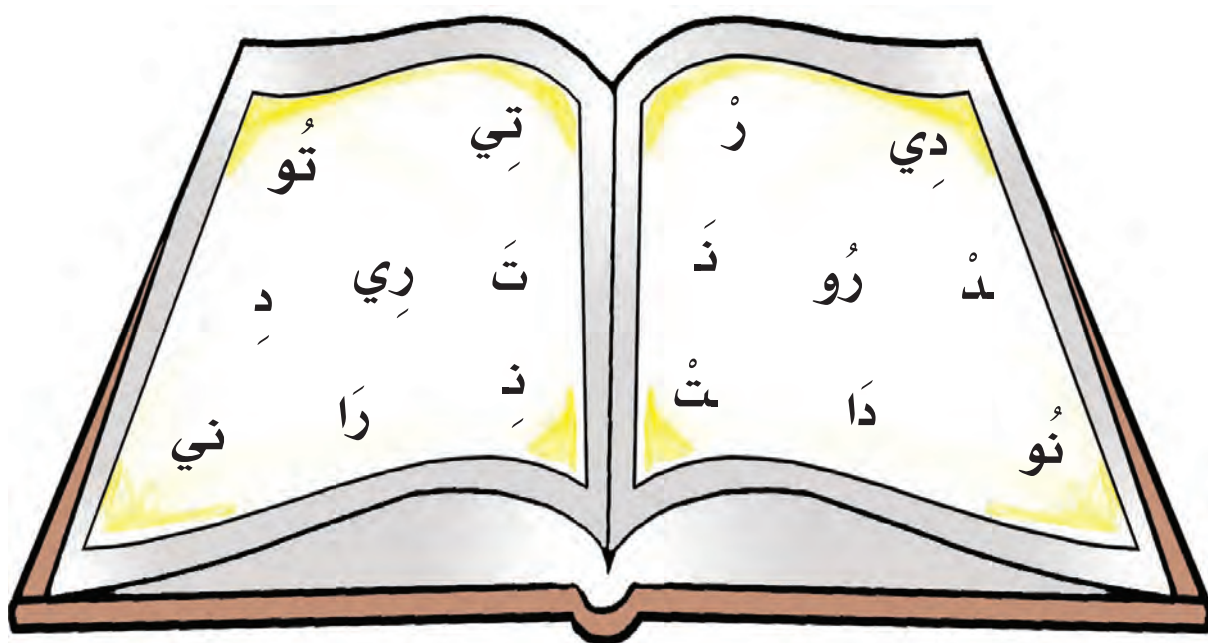 دِي رْ
ـدْ رُو نَـ
نُو دَا ـتْ
تِي تُو
تَ رِي دِ
نِـ رَا ني